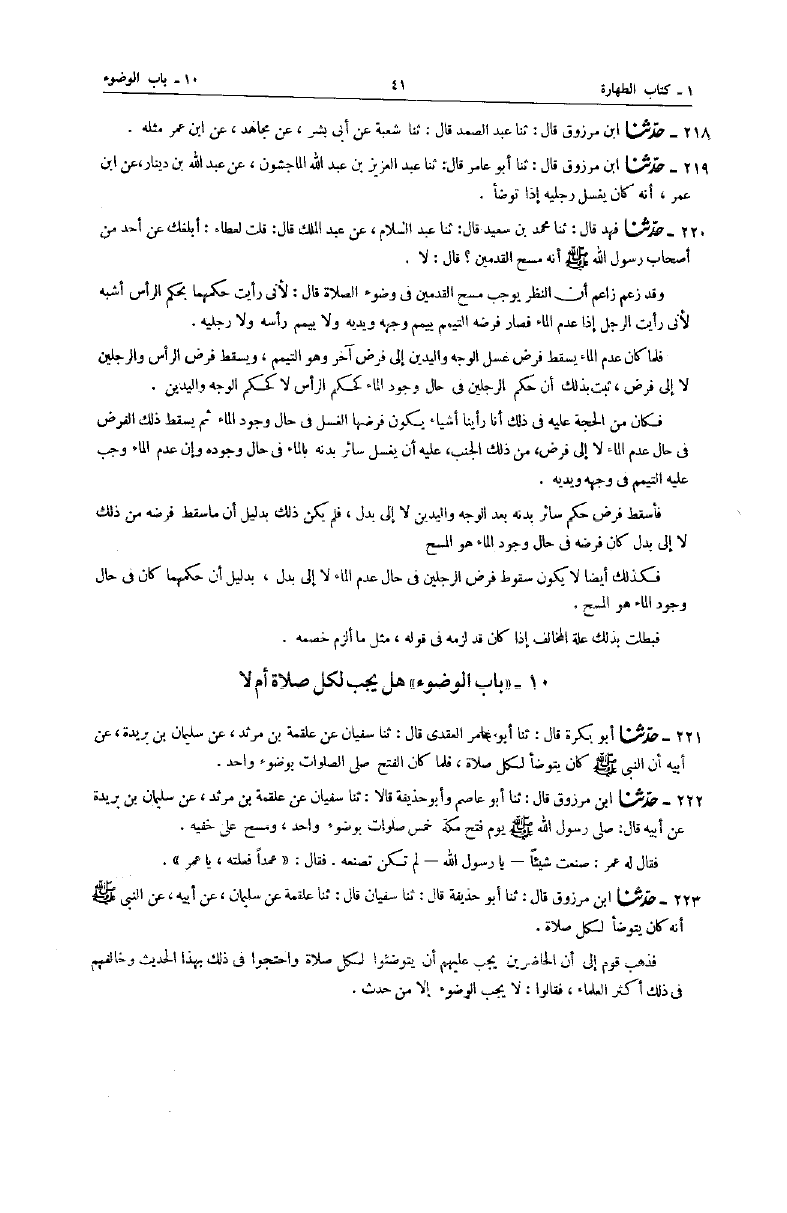 ١ - كتاب الطهارة ٤١ ١٠ - باب الوضوء
٢١٨ - حدثنا ابن مرزوق قال : ثنا عبد الصمد قال : ثنا شعبة عن أبى بشر ، عن مجاهد ، عن ابن عمر مثله .
٢١٩ - حدثنا ابن مرزوق قال : ثنا أبو عامر قال: ثنا عبد العزيز بن عبد الله الماجشون ، عن عبد الله بن دينار، عن ابن
عمر ، أنه كان يغسل رجليه إذا توضأ .
٢٢٠ - حدثنا فهد قال : ثنا محمد بن سعيد قال: ثنا عبد السلام ، عن عبد الملك قال: قلت لعطاء : أبلغك عن أحد من
أصحاب رسول الله ﷺ أنه مسح القدمين ؟ قال : لا .
وقد زعم زاعم أن النظر يوجب مسح القدمين فى وضوء الصلاة قال : لأنى رأيت حكمهما بحكم الرأس أشبه
لأنى رأيت الرجل إذا عدم الماء فصار فرضه التيمم ييمم وجهه ويديه ولا ييمم رأسه ولا رجليه .
فلما كان عدم الماء يسقط فرض غسل الوجه واليدين إلى فرض آخر وهو التيمم ، ويسقط فرض الرأس والرجلين
لا إلى فرض ، ثبت بذلك أن حكم الرجلين فى حال وجود الماء كحكم الرأس لا كحكم الوجه واليدين .
فكان من الحجة عليه فى ذلك أنا رأينا أشياء يكون فرضها الغسل فى حال وجود الماء ثم يسقط ذلك الفرض
فى حال عدم الماء لا إلى فرض، من ذلك الجنب، عليه أن يغسل سائر بدنه بالماء فى حال وجوده وإن عدم الماء وجب
عليه التيمم فى وجهه ويديه .
فأسقط فرض حكم سائر بدنه بعد الوجه واليدين لا إلى بدل ، فلم يكن ذلك بدليل أن ماسقط فرضه من ذلك
لا إلى بدل كان فرضه فى حال وجود الماء هو المسح
فكذلك أيضا لا يكون سقوط فرض الرجلين فى حال عدم الماء لا إلى بدل ، بدليل أن حكمهما كان فى حال
وجود الماء هو المسح .
فبطلت بذلك علة المخالف إذا كان قد لزمه فى قوله ، مثل ما ألزم خصمه .
١٠ - «باب الوضوء» هل يجب لكل صلاة أم لا
٢٢١ - حدثنا أبو بكرة قال : ثنا أبو عامر العقدى قال : ثنا سفيان عن علقمة بن مرثد ، عن سليمان بن بريدة ، عن
أبيه أن النبي ﷺ كان يتوضأ لكل صلاة ، فلما كان الفتح صلى الصلوات بوضوء واحد .
٢٢٢ - حدثنا ابن مرزوق قال : ثنا أبو عاصم وأبو حذيفة قالا : ثنا سفيان عن علقمة بن مرثد ، عن سليمان بن بريدة
عن أبيه قال: صلى رسول الله ﷺ يوم فتح مكة خمس صلوات بوضوء واحد ، ومسح على خفيه .
فقال له عمر : صنعت شيئاً — يا رسول الله — لم تكن تصنعه . فقال : « عمداً فعلته ، يا عمر » .
٢٢٣ - حدثنا ابن مرزوق قال : ثنا أبو حذيفة قال : ثنا سفيان قال : ثنا علقمة عن سليمان ، عن أبيه ، عن النبي ﷺ
أنه كان يتوضأ لكل صلاة .
فذهب قوم إلى أن الحاضرين يجب عليهم أن يتوضئوا لكل صلاة واحتجوا فى ذلك بهذا الحديث وخالفهم
فى ذلك أكثر العلماء ، فقالوا : لا يجب الوضوء إلا من حدث .